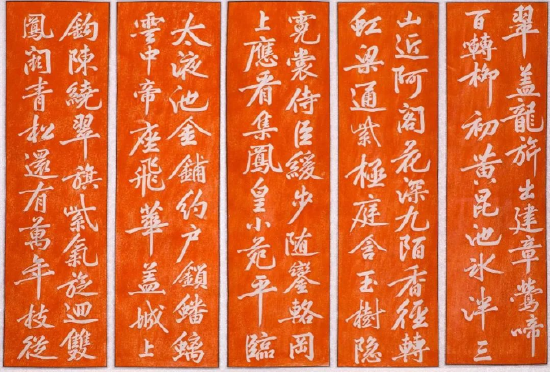 翠蓋龍旂出建章鶯啼
百轉柳初黄昆池氷泮三
山近阿閣花深九陌香徑轉
虹梁通紫極庭含玉樹隠
霓裳侍臣緩步随鑾輅岡
上應看集鳳皇小苑平臨
太液池金鋪約户鎖蟠螭
雲中帝座飛華蓋城上
鈎陳繞翠旗紫氣旋迴雙
鳳闕青松還有萬年枝從